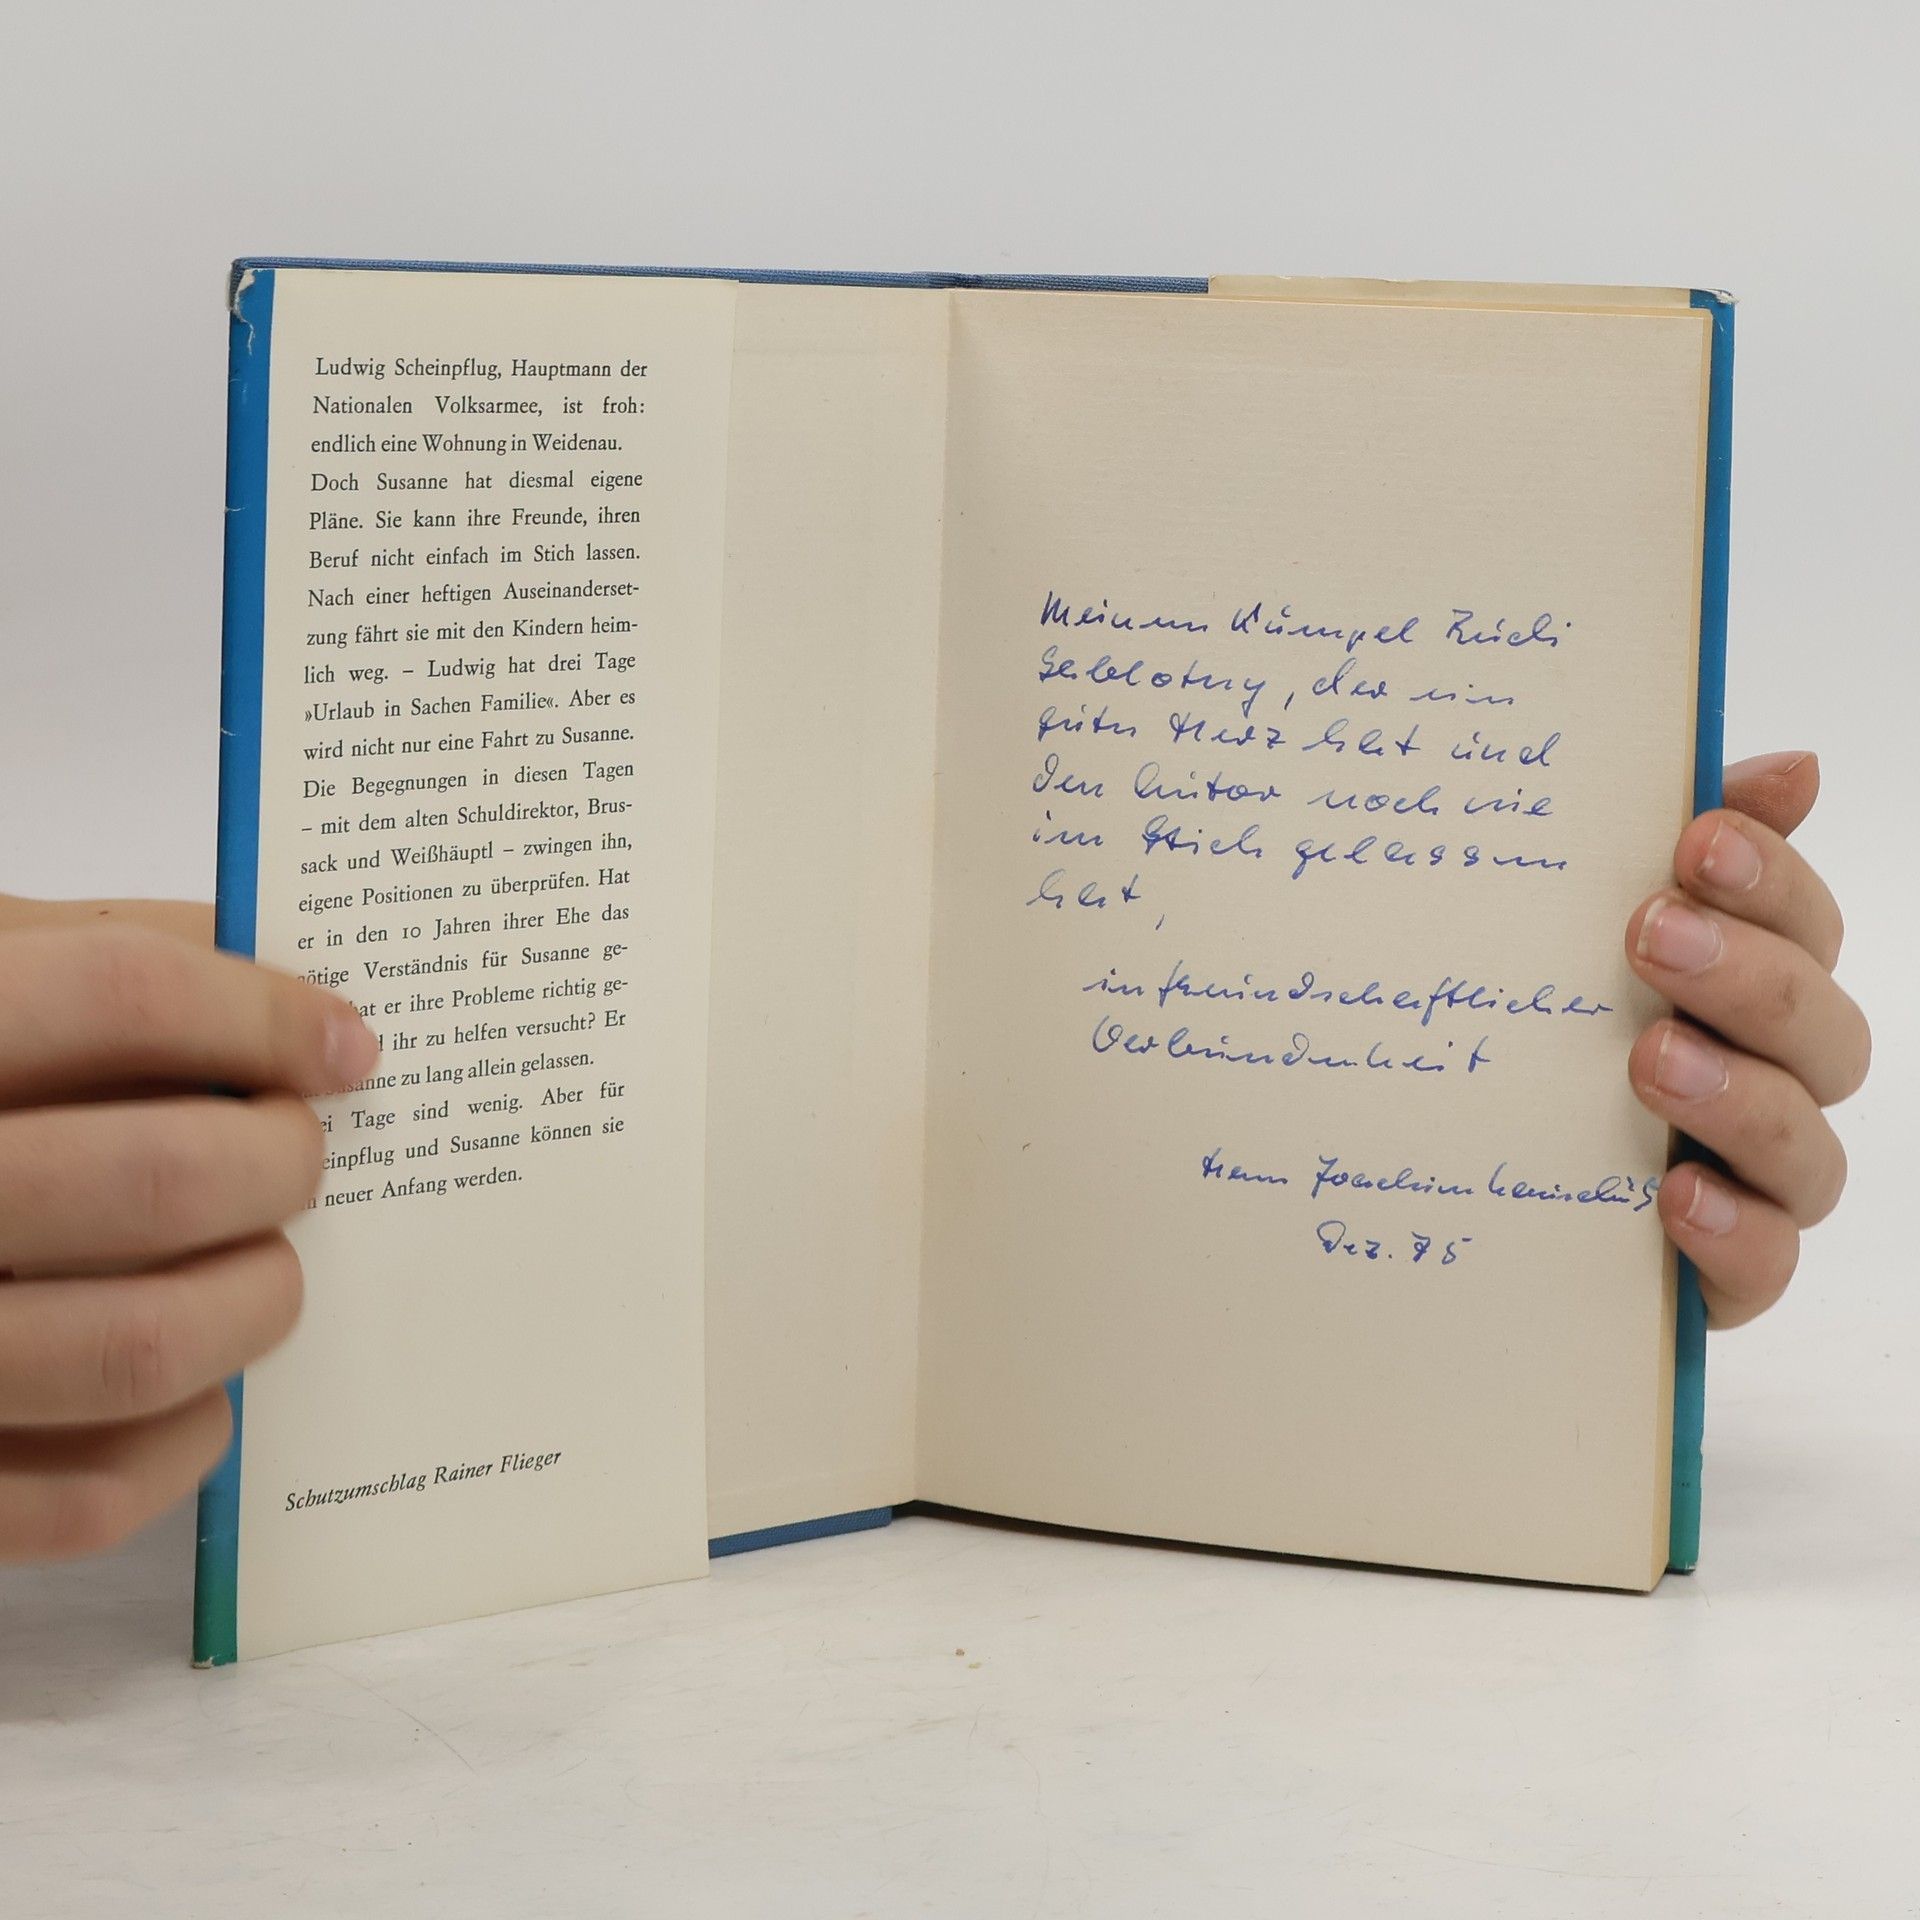 Ludwig Scheinpflug, Hauptmann der
Nationalen Volksarmee, ist froh:
endlich eine Wohnung in Weidenau.
Doch Susanne hat diesmal eigene
Pläne. Sie kann ihre Freunde, ihren
Beruf nicht einfach im Stich lassen.
Nach einer heftigen Auseinanderset-
zung fährt sie mit den Kindern heim-
lich weg. – Ludwig hat drei Tage
»Urlaub in Sachen Familie«. Aber es
wird nicht nur eine Fahrt zu Susanne.
Die Begegnungen in diesen Tagen
– mit dem alten Schuldirektor, Brus-
sack und Weißhäuptl – zwingen ihn,
eigene Positionen zu überprüfen. Hat
er in den 10 Jahren ihrer Ehe das
nötige Verständnis für Susanne ge-
hat er ihre Probleme richtig ge-
ihr zu helfen versucht? Er
Susanne zu lang allein gelassen.
Tage sind wenig. Aber für
einpflug und Susanne können sie
neuer Anfang werden.
Schutzumschlag Rainer Flieger
Meinem Kumpel Rudi
, der ein
gutes Herz hat und
den Autor noch nie
im Stich gelassen
hat,
in freundschaftlicher
Verbundenheit
Joachim
Dez. 75